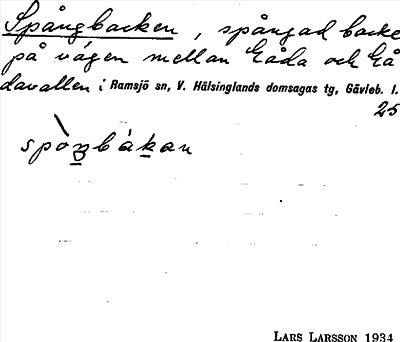 Spångbacken, spångad backe
på vägen mellan Gåda och Gå
davallen i Ramsjö sn, V. Hälsinglands domsagas tg, Gävleb. l.
25
spòŋbákan
LARS LARSSON 1934